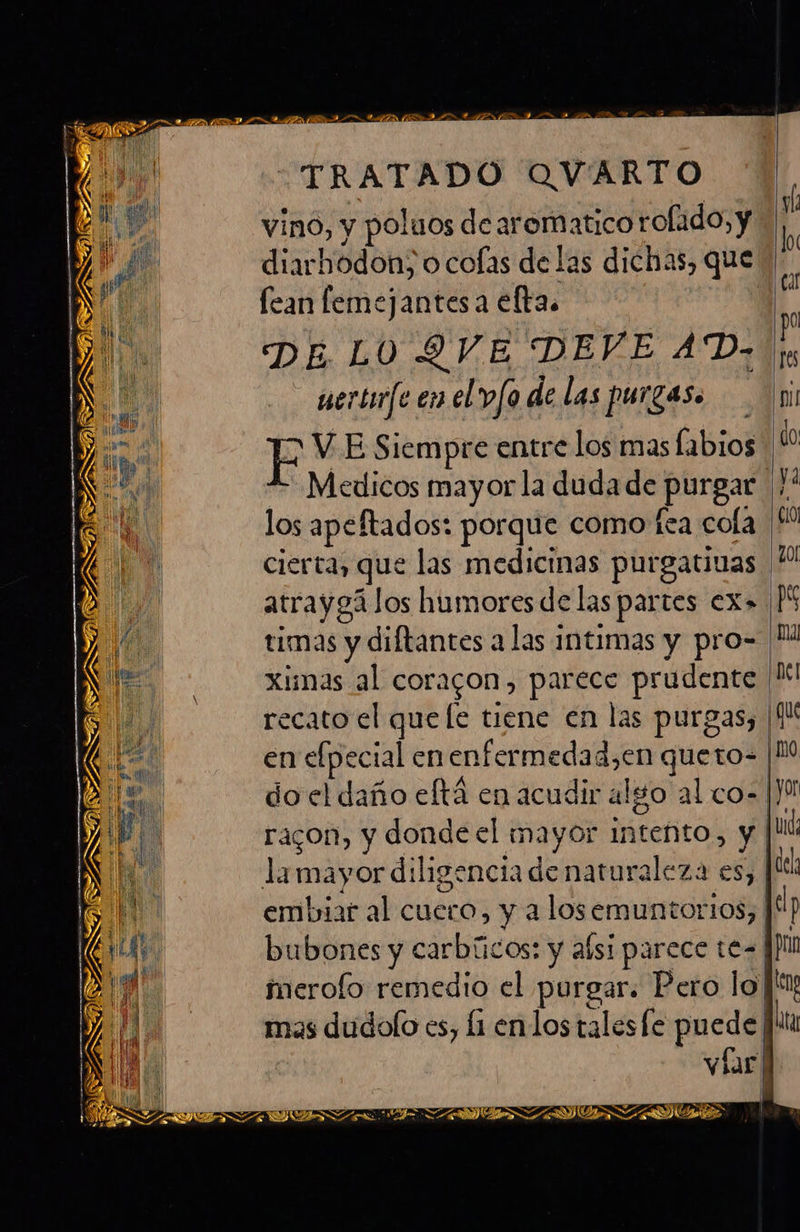 TRATADO QVARTO
vino, y poluos de aromatico rosado, y
diarhodon; o cosas de las dichas, que
sean semejantes a esta.
DE LO QVE DEVE AD-
uertirse en el vso de las purgas.
FVE Siempre entre los mas sabios
Medicos mayor la duda de purgar
los apestados: porque como sea cosa
cierta, que las medicinas purgatiuas
atraygã los humores de las partes ex-
timas y distantes a las intimas y pro-
ximas al coraçon, parece prudente
recato el que se tiene en las purgas,
en especial en enfermedad, en que to-
do el daño está en acudir algo al co-
raçon, y donde el mayor intento, y
la mayor diligencia de naturaleza es,
embiar al cuero, y a los emuntorios,
bubones y carbũcos: y assi parece te-
meroso remedio el purgar. Pero lo
mas dudoso es, si en los tales se puede
vsar